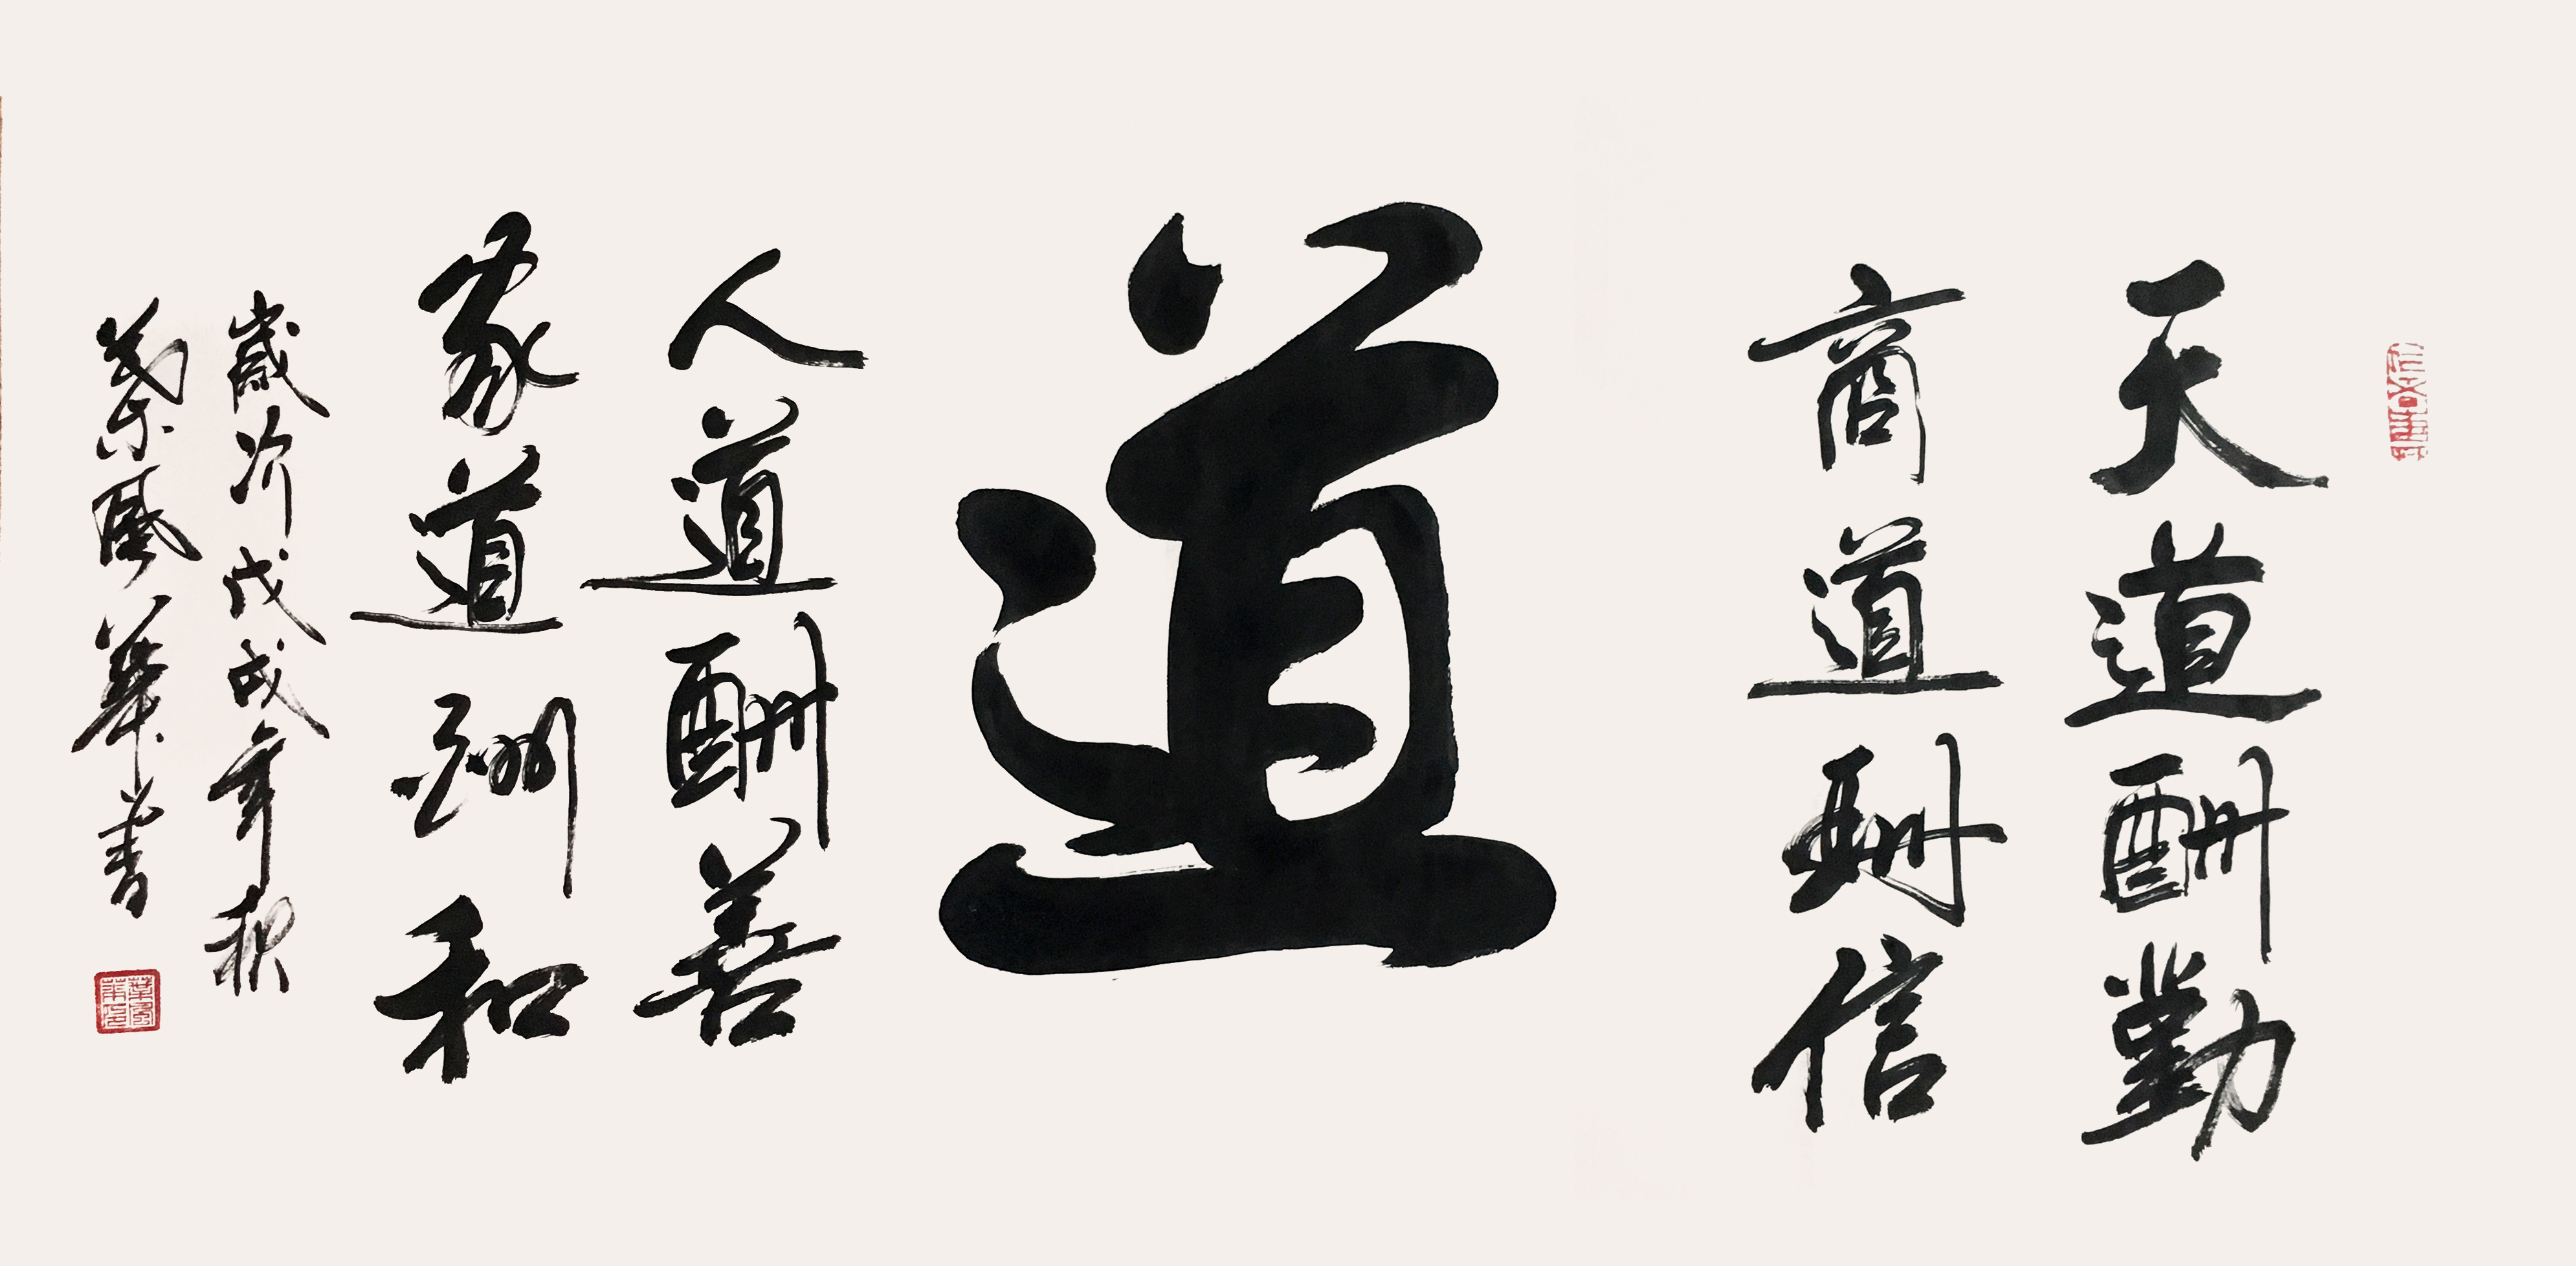 天道酬勤
商道酬信
道
人道酬善
家道酬和
歲次戊戌年秋
葉鳳華書